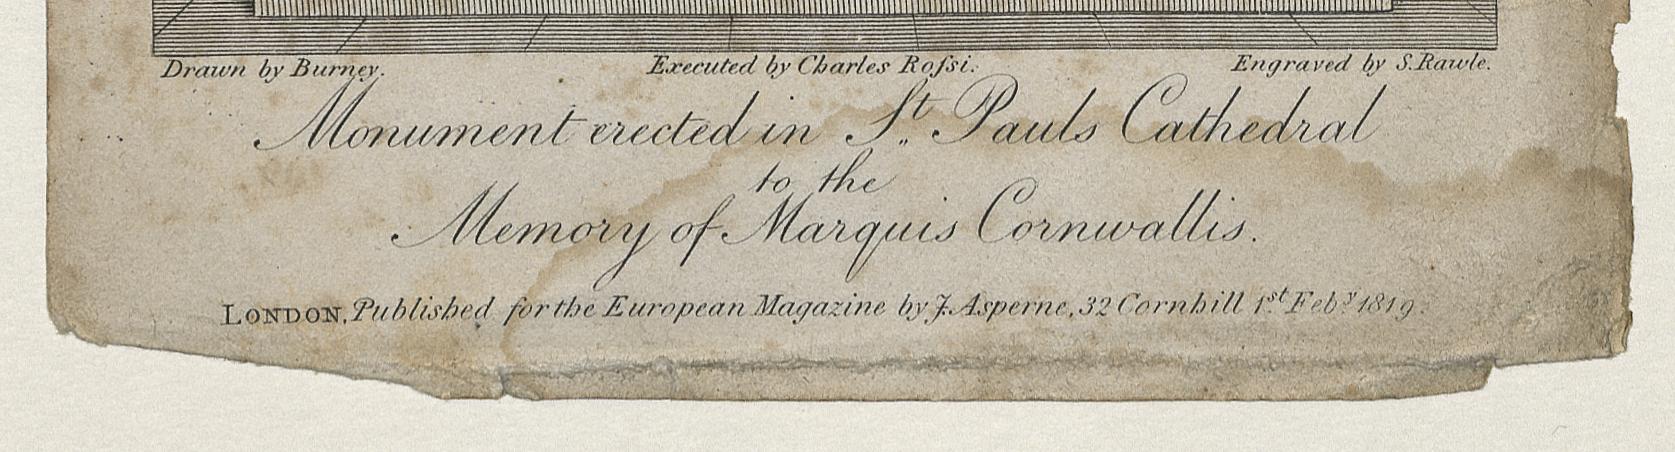 Drawn by Burney. Executed by Charles Roſsi. Engraved by S. Rawle.
Monument erected in St. Pauls Cathedral
to the
Memory of Marquis Cornwallis.
LONDON, Published for the European Magazine by J. Asperne, 32 Cornhill 1st Feby 1819.